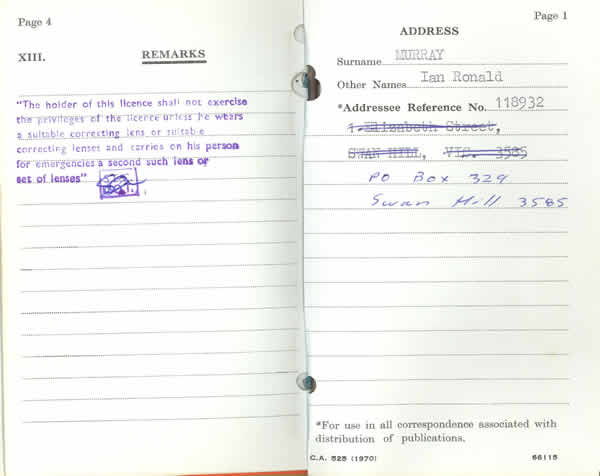 Page 4
XIII. REMARKS
"The holder of this licence shall not exercise
the privileges of the licence unless he wears
a suitable correcting lens or suitable
correcting lenses and carries on his person
for emergencies a second such lens or
set of lenses"
Page 1
ADDRESS
Surname MURRAY
Other Names Ian Ronald
*Addressee Reference No. 118932
1 Elizabeth Street,
SWAN HILL, VIC. 3585
PO Box 329
Swan Hill 3585
*For use in all correspondence associated with
distribution of publications.
C.A. 525 (1970) 66115